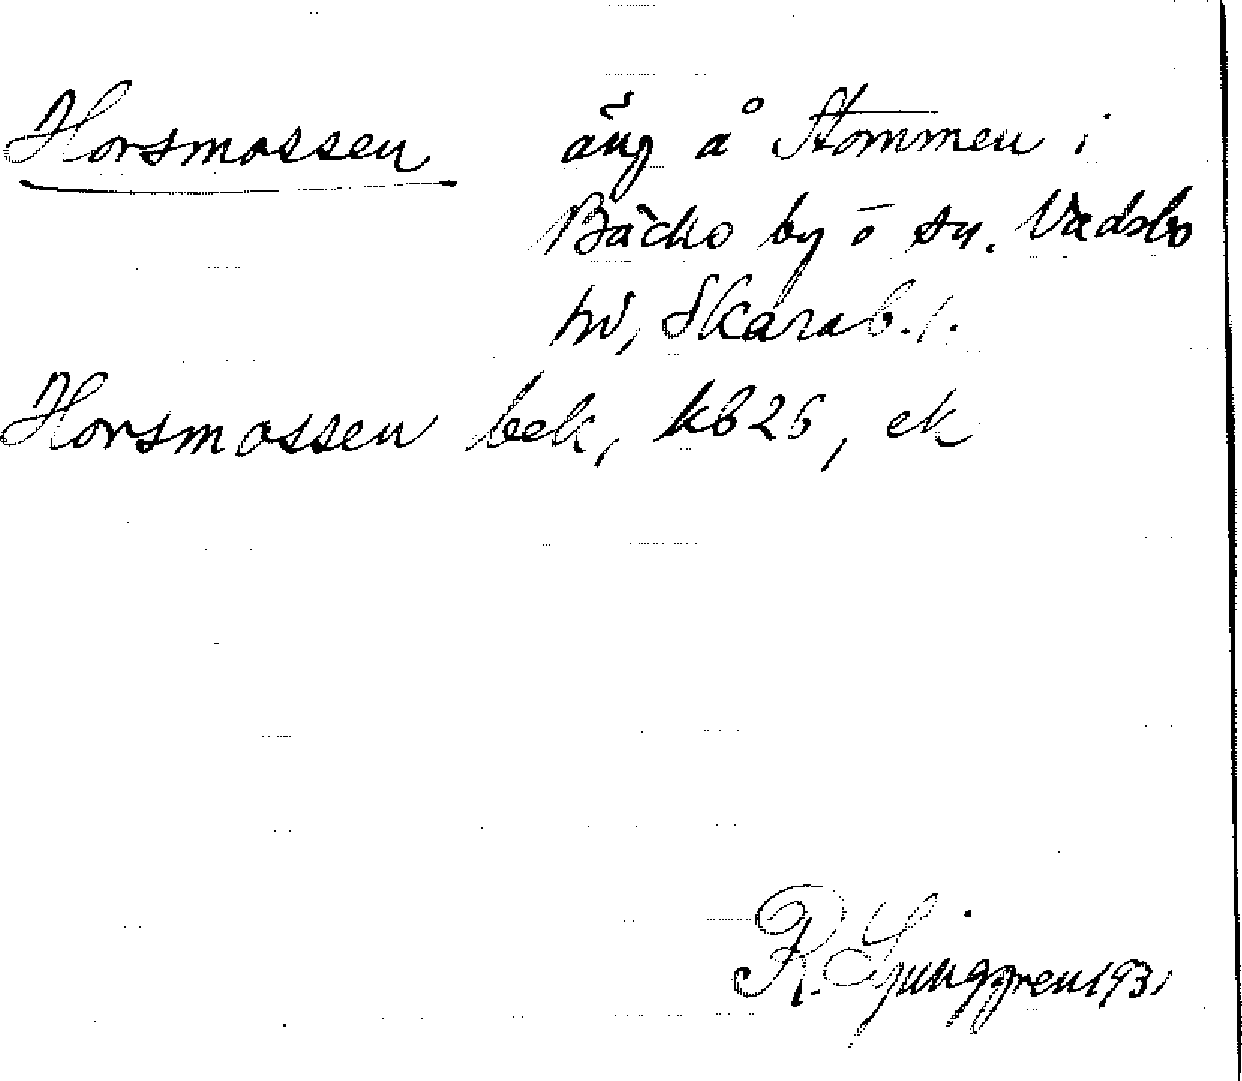 Horsmossen äng å Stommen i
Bäcks by o sn. Vadsbo
hd, Skarab. l.
Horsmossen bek, kb25, ek
R. Ljunggren 1931